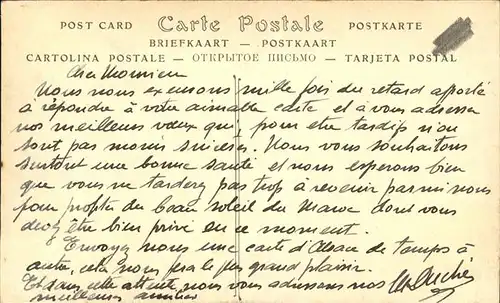 POST CARD Carte Postale POSTKARTE
BRIEFKAART — POSTKAART
CARTOLINA POSTALE — ОТКРЫТОЕ ПИСЬМО — TARJETA POSTAL
Cher Monsieur
Nous nous excusons mille fois du retard apporté
à répondre à votre aimable carte et à vous adresser
nos meilleurs vœux qui, pour être tardifs n'en
sont pas moins sincères. Nous vous souhaitons
surtout une bonne santé et nous espérons bien
que vous ne tarderez pas trop à revenir parmi nous
pour profiter du beau soleil du Maroc dont vous
devez être bien privé en ce moment.
Envoyez nous une carte d'Alsace de temps à
autre, cela nous fera le plus grand plaisir.
Et dans cette attente nous vous adressons nos
meilleures amitiés